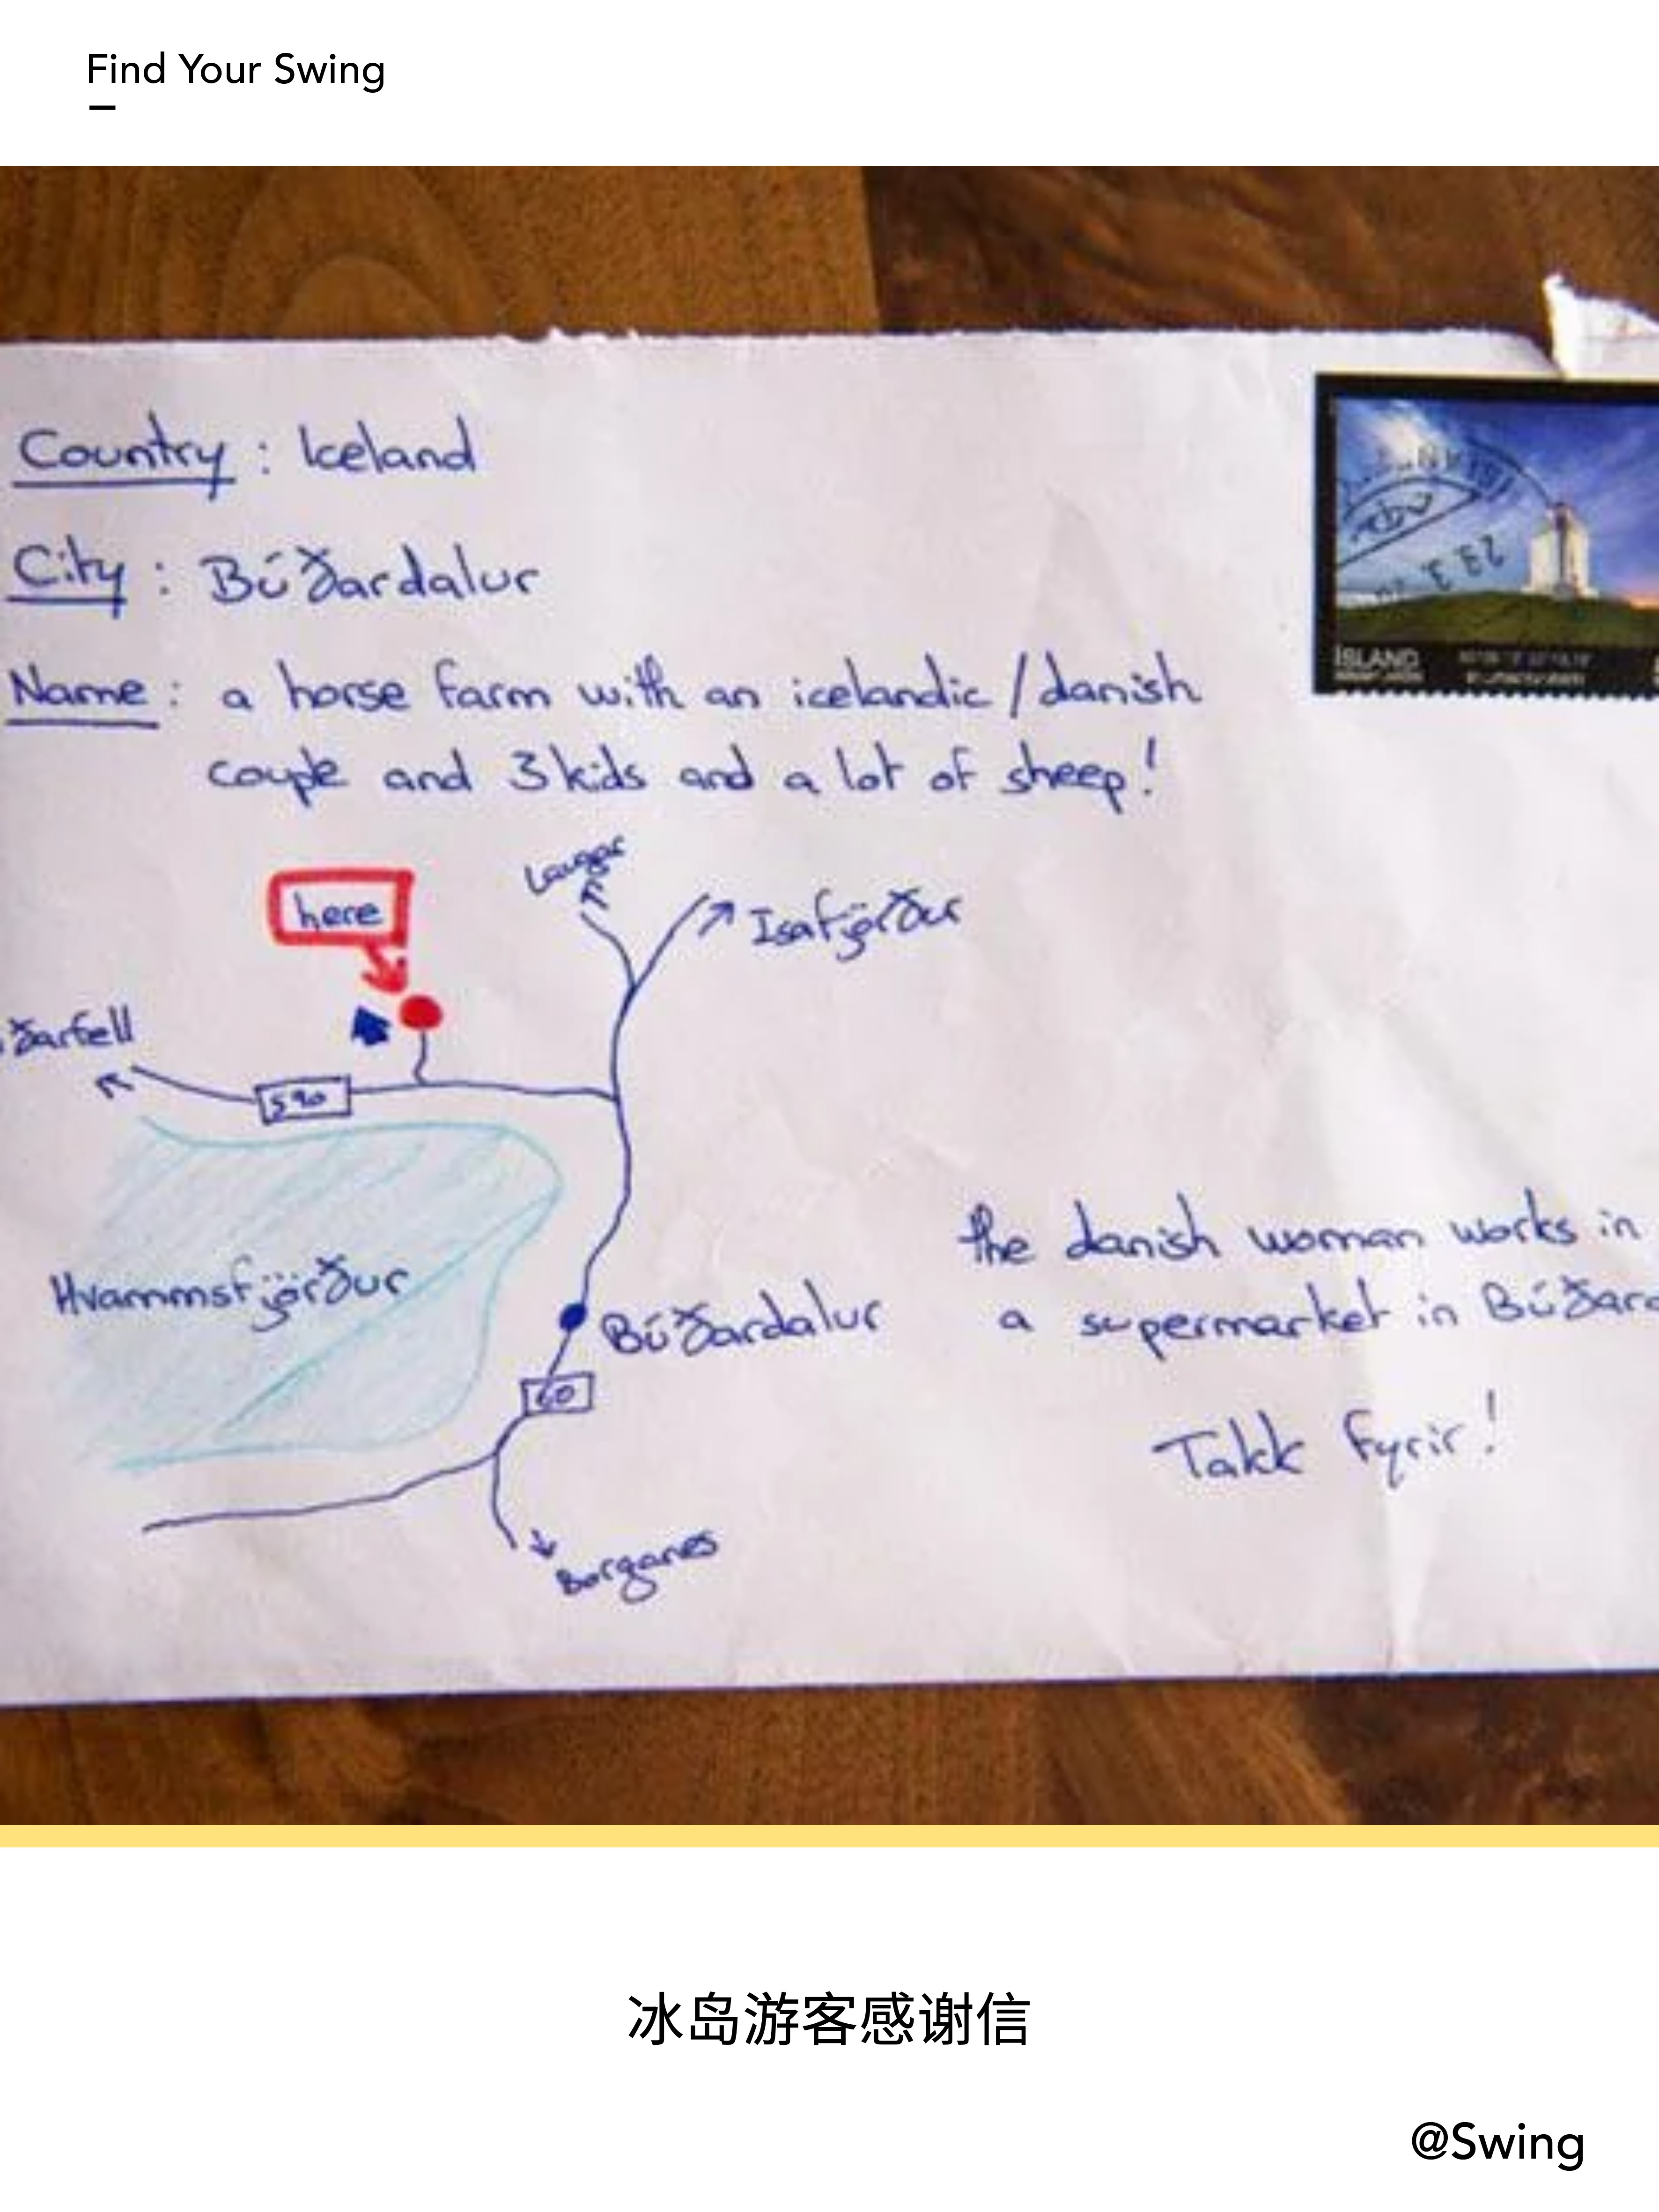 Find Your Swing
Country : Iceland
City : Búðardalur
Name : a horse farm with an icelandic/danish
couple and 3 kids and a lot of sheep!
here
Laugar
Isafjörður
ðarfell
590
Hvammsfjörður
Búðardalur
60
Borganes
the danish woman works in
a supermarket in Búðard
Takk fyrir!
ÍSLAND
冰岛游客感谢信
@Swing